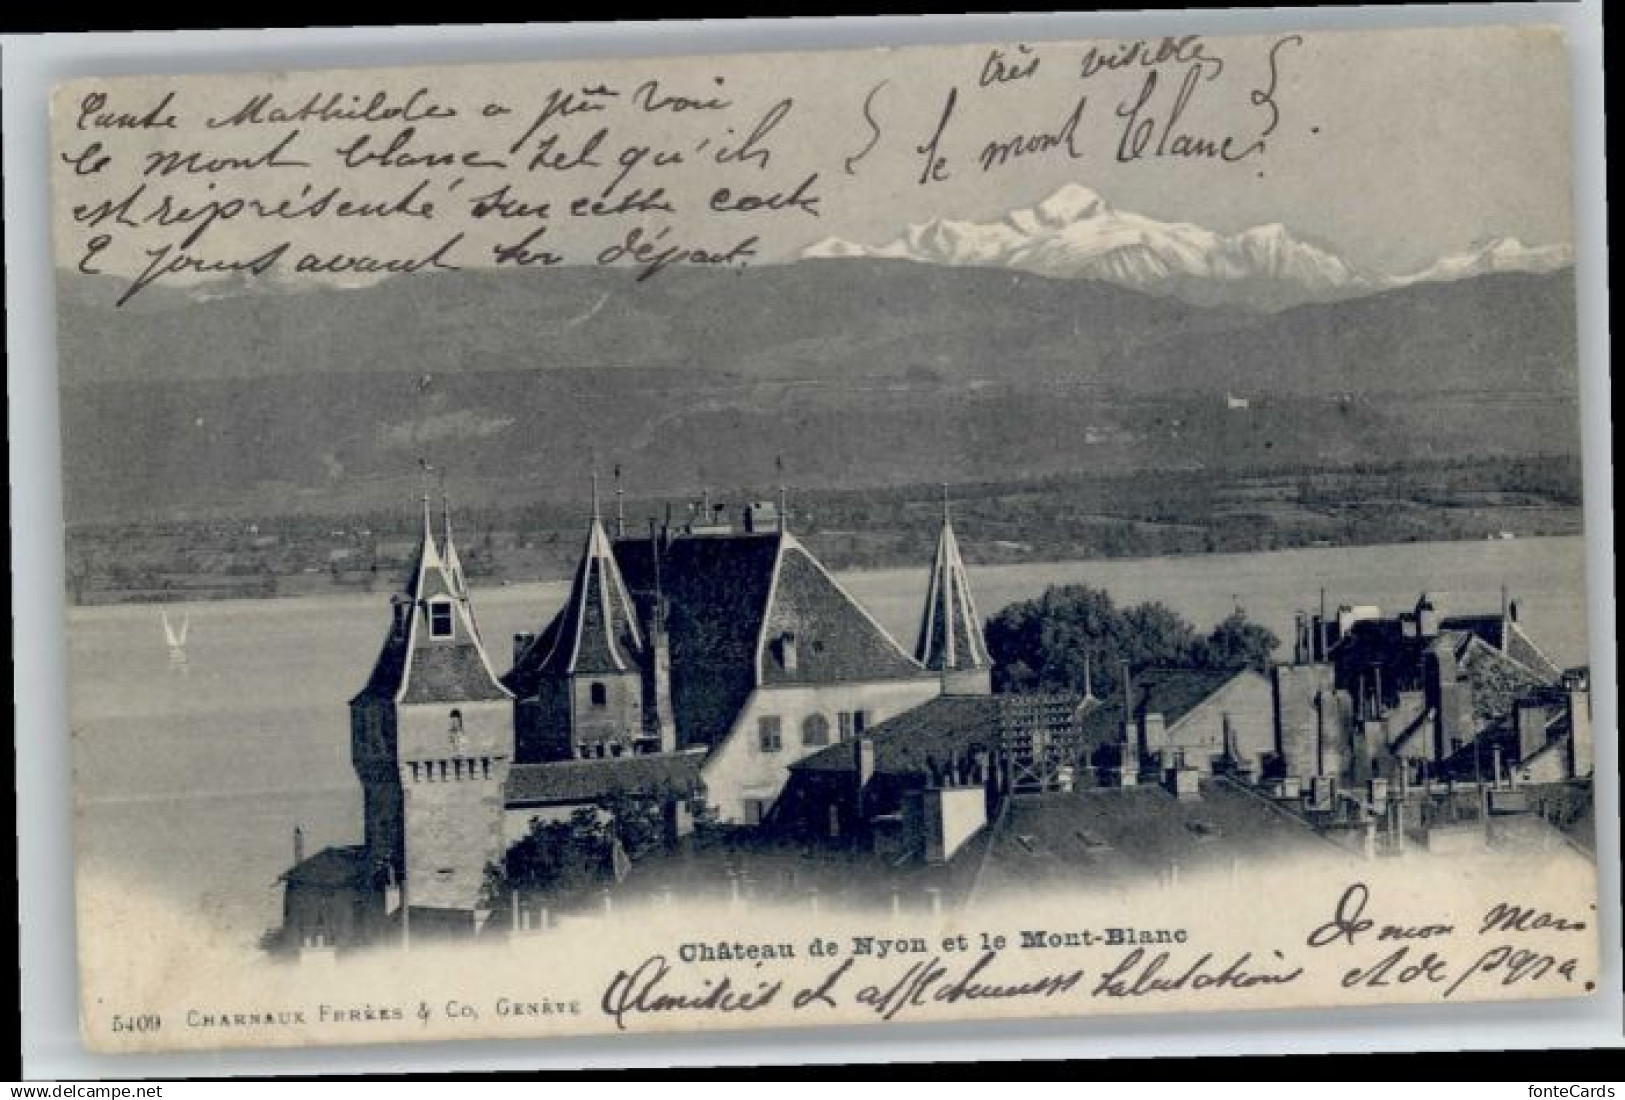 très visible
Tante Mathilde a pu voir
le mont blanc tel qu'il
le mont blanc.
est représenté sur cette carte
2 jours avant son départ.
Château de Nyon et le Mont-Blanc
De mon mari
Amitiés et affectueuses salutation et de papa.
5409 CHARNAUX FRÈRES & Co, GENÈVE
fonteCards